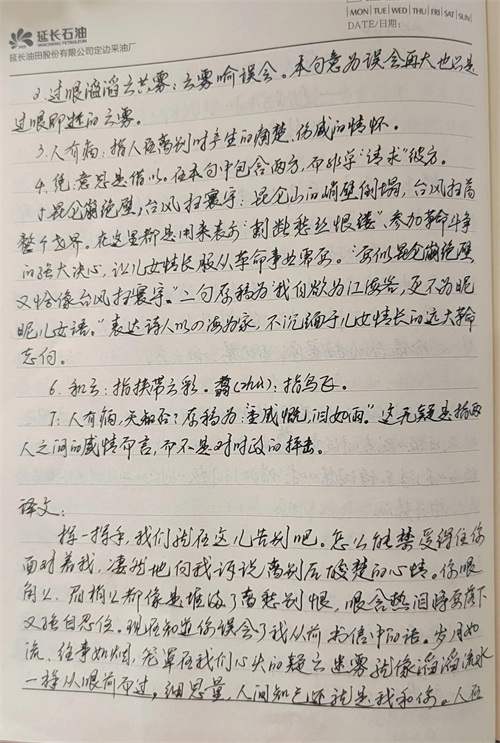 延长石油
YANCHANG PETROLEUM
延长油田股份有限公司定边采油厂
MON TUE WED THU FRI SAT SUN
DATE/日期:
2.过眼滔滔云共雾:云雾喻误会。本句意为误会再大也只是
过眼即逝的云雾。
3.人有病:指人因离别时产生的痛楚、伤感的情怀。
4.凭:意思是借以。在本句中包含两方,而非单“请求”彼方。
5.昆仑崩绝壁,台风扫寰宇:昆仑山的峭壁倒塌,台风扫荡
整个世界。在这里都是用来表示“割断愁丝恨缕”、参加革命斗争
的强大决心,让儿女情长服从革命事业需要。“要似昆仑崩绝壁
又恰像台风扫寰宇。”二句原稿为“我自欲为江海客,更不为昵
昵儿女语。”表达诗人以四海为家,不沉缅于儿女情长的远大革命
志向。
6.和云:指携带云彩。翥(zhù):指鸟飞。
7:人有病,天知否?原稿为:“重感慨,泪如雨”。这无疑是指两
人之间的感情而言,而不是对时政的抨击。
译文:
挥一挥手,我们就在这儿告别吧。怎么能禁受得住你
面对着我,凄然地向我诉说离别后酸楚的心情。你眼
角上、眉梢上都像是堆满了离愁别恨,眼含热泪将要落下
又强自忍住。现在知道你误会了我从前书信中的话。岁月如
流,往事如烟,笼罩在我们心头的疑云迷雾就像滔滔流水
一样从眼前而过。细思量,人间知己还就是我和你。人在